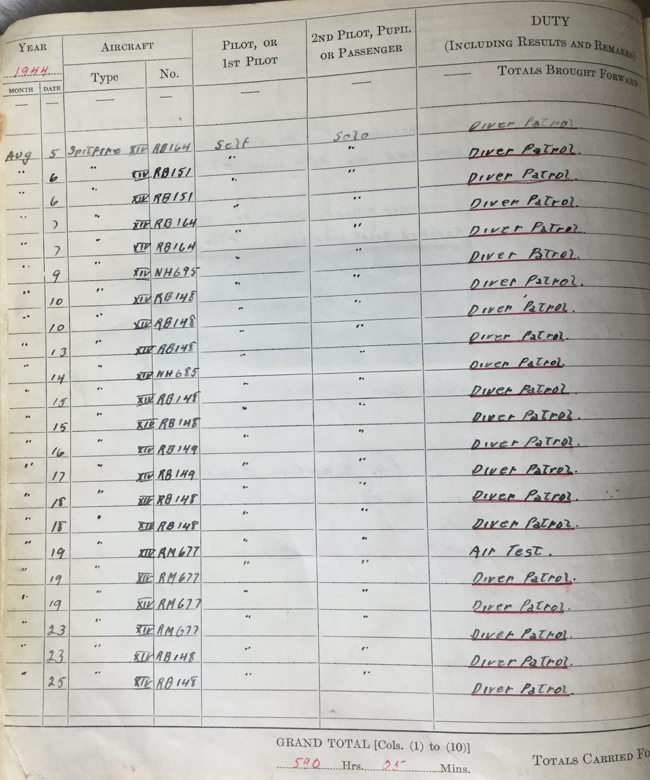 YEAR AIRCRAFT PILOT, OR 1ST PILOT 2ND PILOT, PUPIL OR PASSENGER DUTY (INCLUDING RESULTS AND REMARKS)
1944 Type No.
MONTH DATE TOTALS BROUGHT FORWARD
— — — — — — —
Aug 5 Spitfire XIV RB164 Self Solo Diver Patrol
" 6 " XIV RB151 " " Diver Patrol.
" 6 " XIV RB151 " " Diver Patrol.
" 7 " XIV RB164 " " Diver Patrol.
" 7 " XIV RB164 " " Diver Patrol.
" 9 " XIV NH695 " " Diver Patrol.
" 10 " XIV RB148 " " Diver Patrol.
" 10 " XIV RB148 " " Diver Patrol.
" 13 " XIV RB148 " " Diver Patrol.
" 14 " XIV NH685 " " Diver Patrol
" 15 " XIV RB148 " " Diver Patrol.
" 15 " XIV RB148 " " Diver Patrol.
" 16 " XIV RB149 " " Diver Patrol.
" 17 " XIV RB149 " " Diver Patrol.
" 18 " XIV RB148 " " Diver Patrol.
" 18 " XIV RB148 " " Diver Patrol.
" 19 " XIV RM677 " " Air Test.
" 19 " XIV RM677 " " Diver Patrol.
" 19 " XIV RM677 " " Diver Patrol.
" 23 " XIV RM677 " " Diver Patrol.
" 23 " XIV RB148 " " Diver Patrol.
" 25 " XIV RB148 " " Diver Patrol.
GRAND TOTAL [Cols. (1) to (10)]
590 Hrs. 05 Mins. TOTALS CARRIED FO